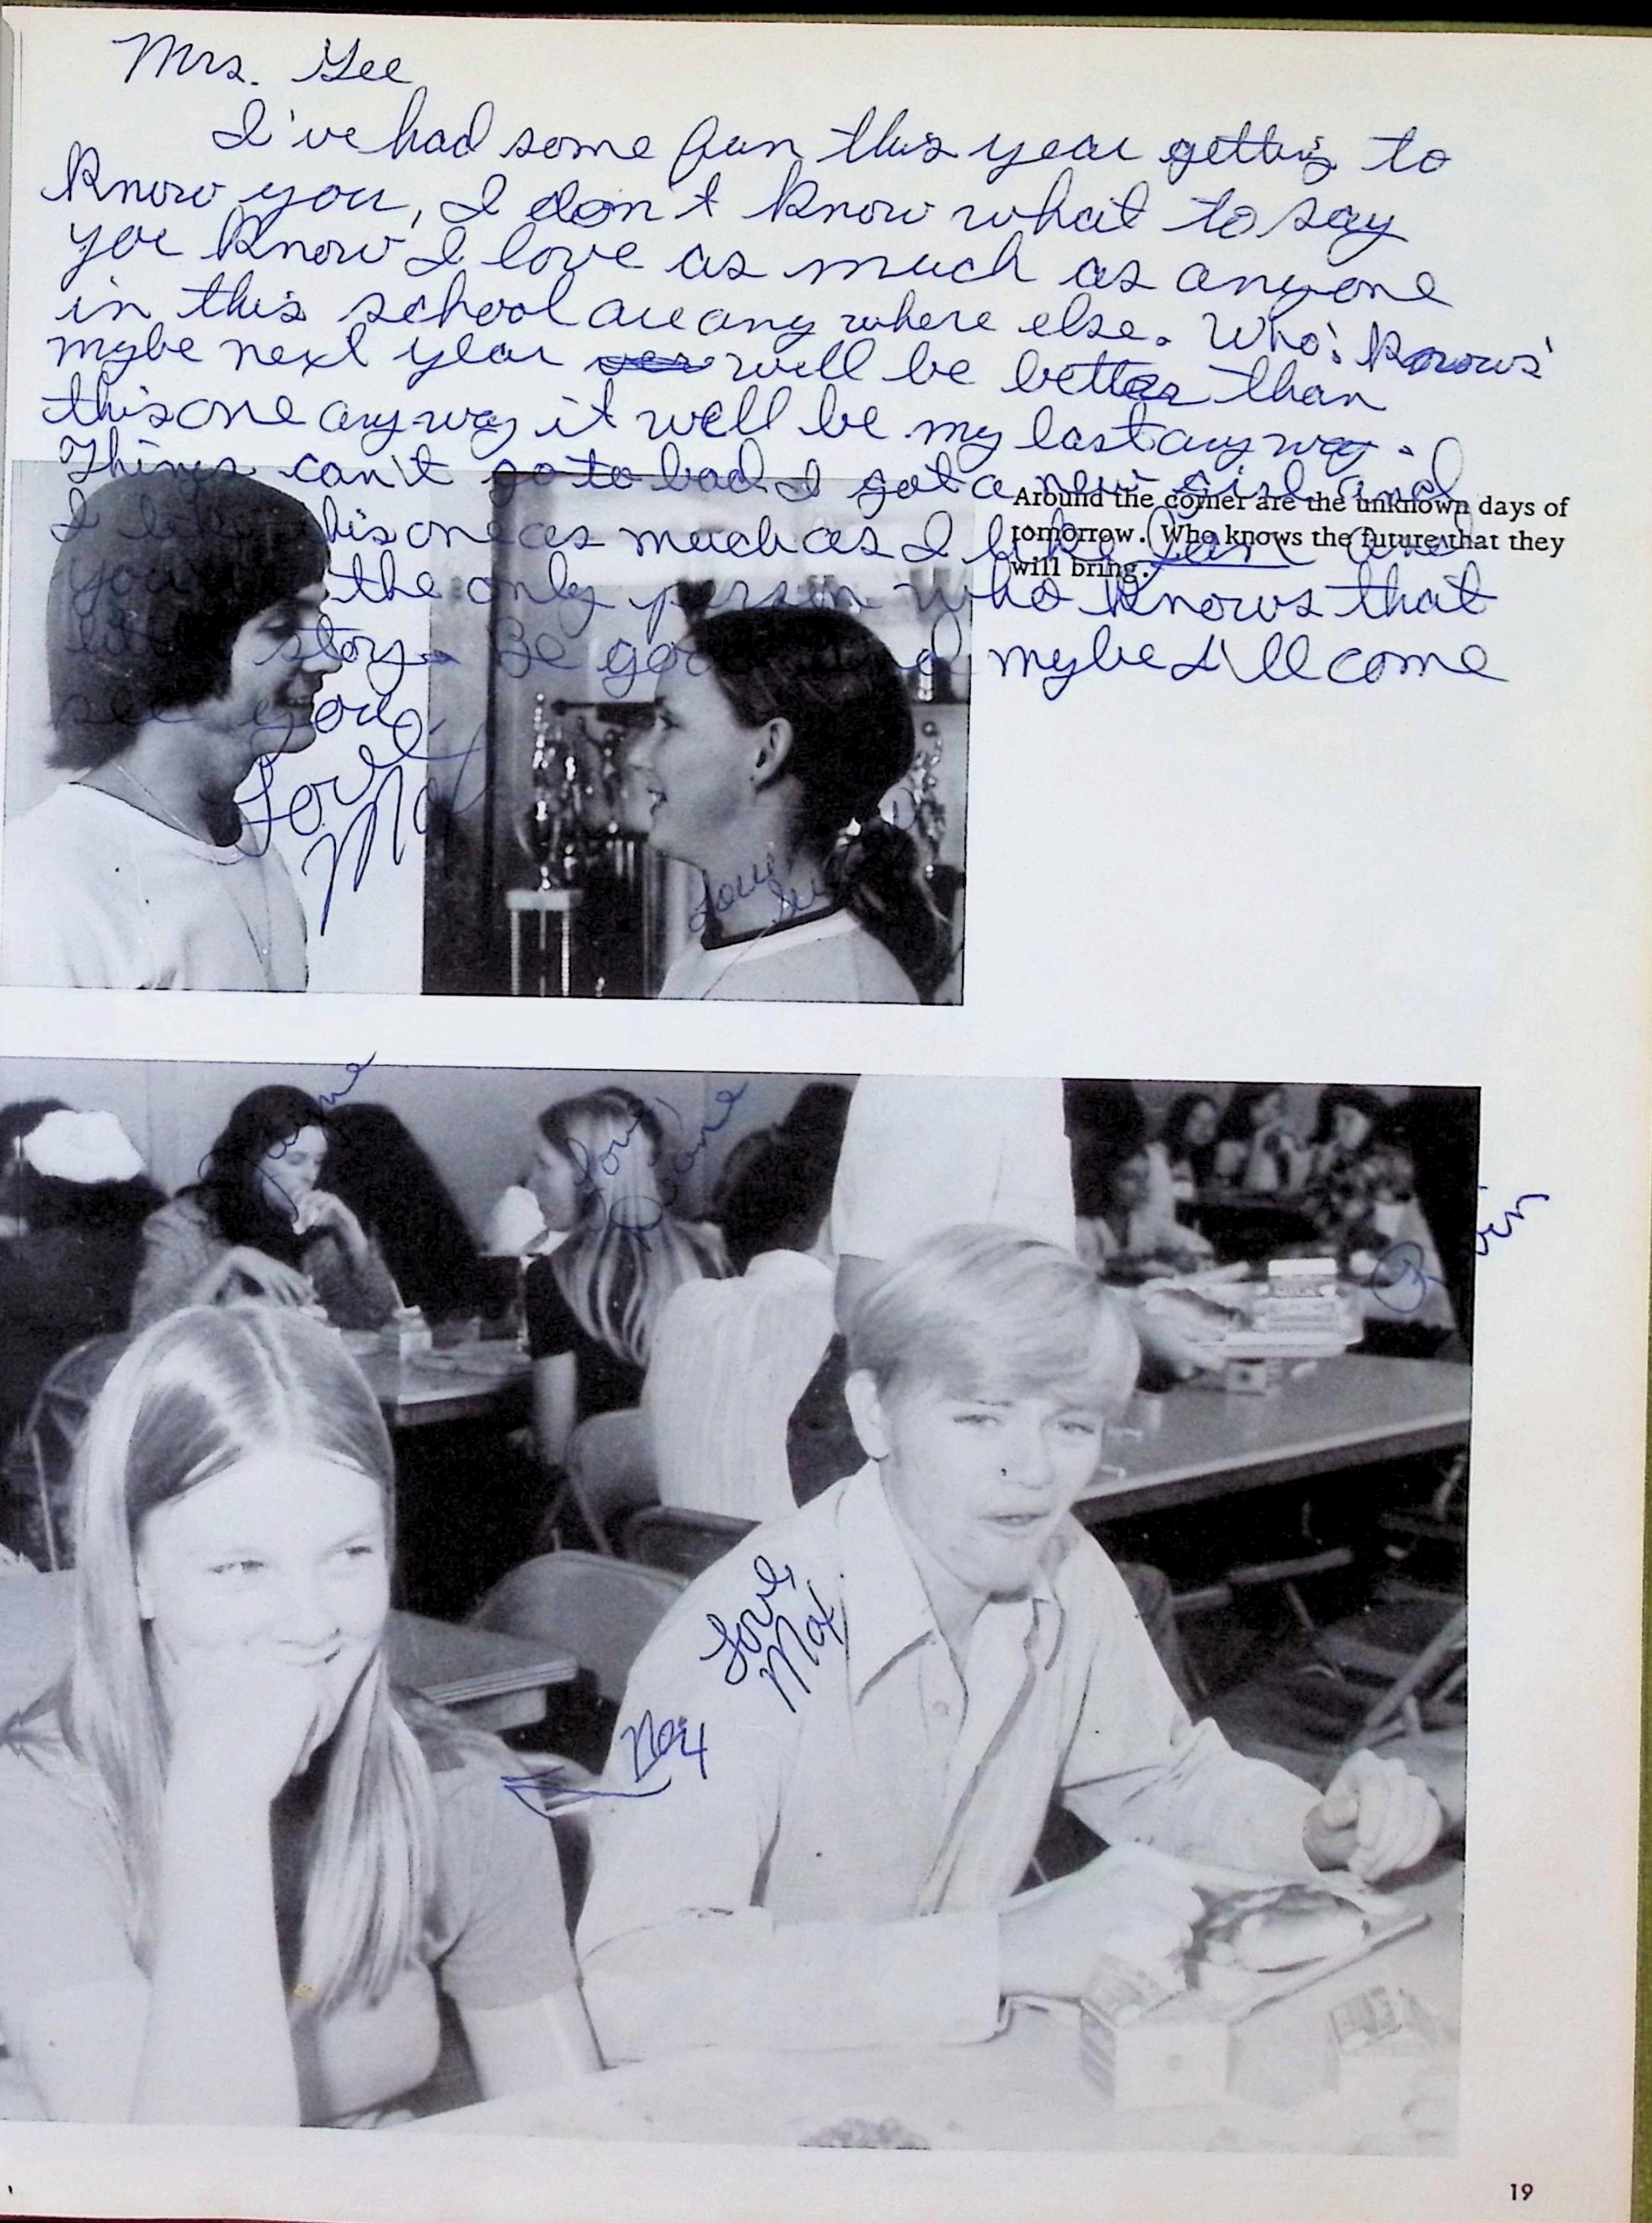 Mrs. Gee
I've had some fun this year getting to
know you, I don't know what to say
you know I love as much as anyone
in this school are any where else. Who 'knows'
mybe next year will be better than
this one anyway it will be my last anyway.
Things can't go to bad I got a new girl and
I like this one as much as I like and
you the only person who knows that
story. Be good and mybe I'll come
see you
Love
Max
Around the corner are the unknown days of
tomorrow. Who knows the future that they
will bring.
Love
Jayne
Love,
Deane
Robin
Love,
Max
19